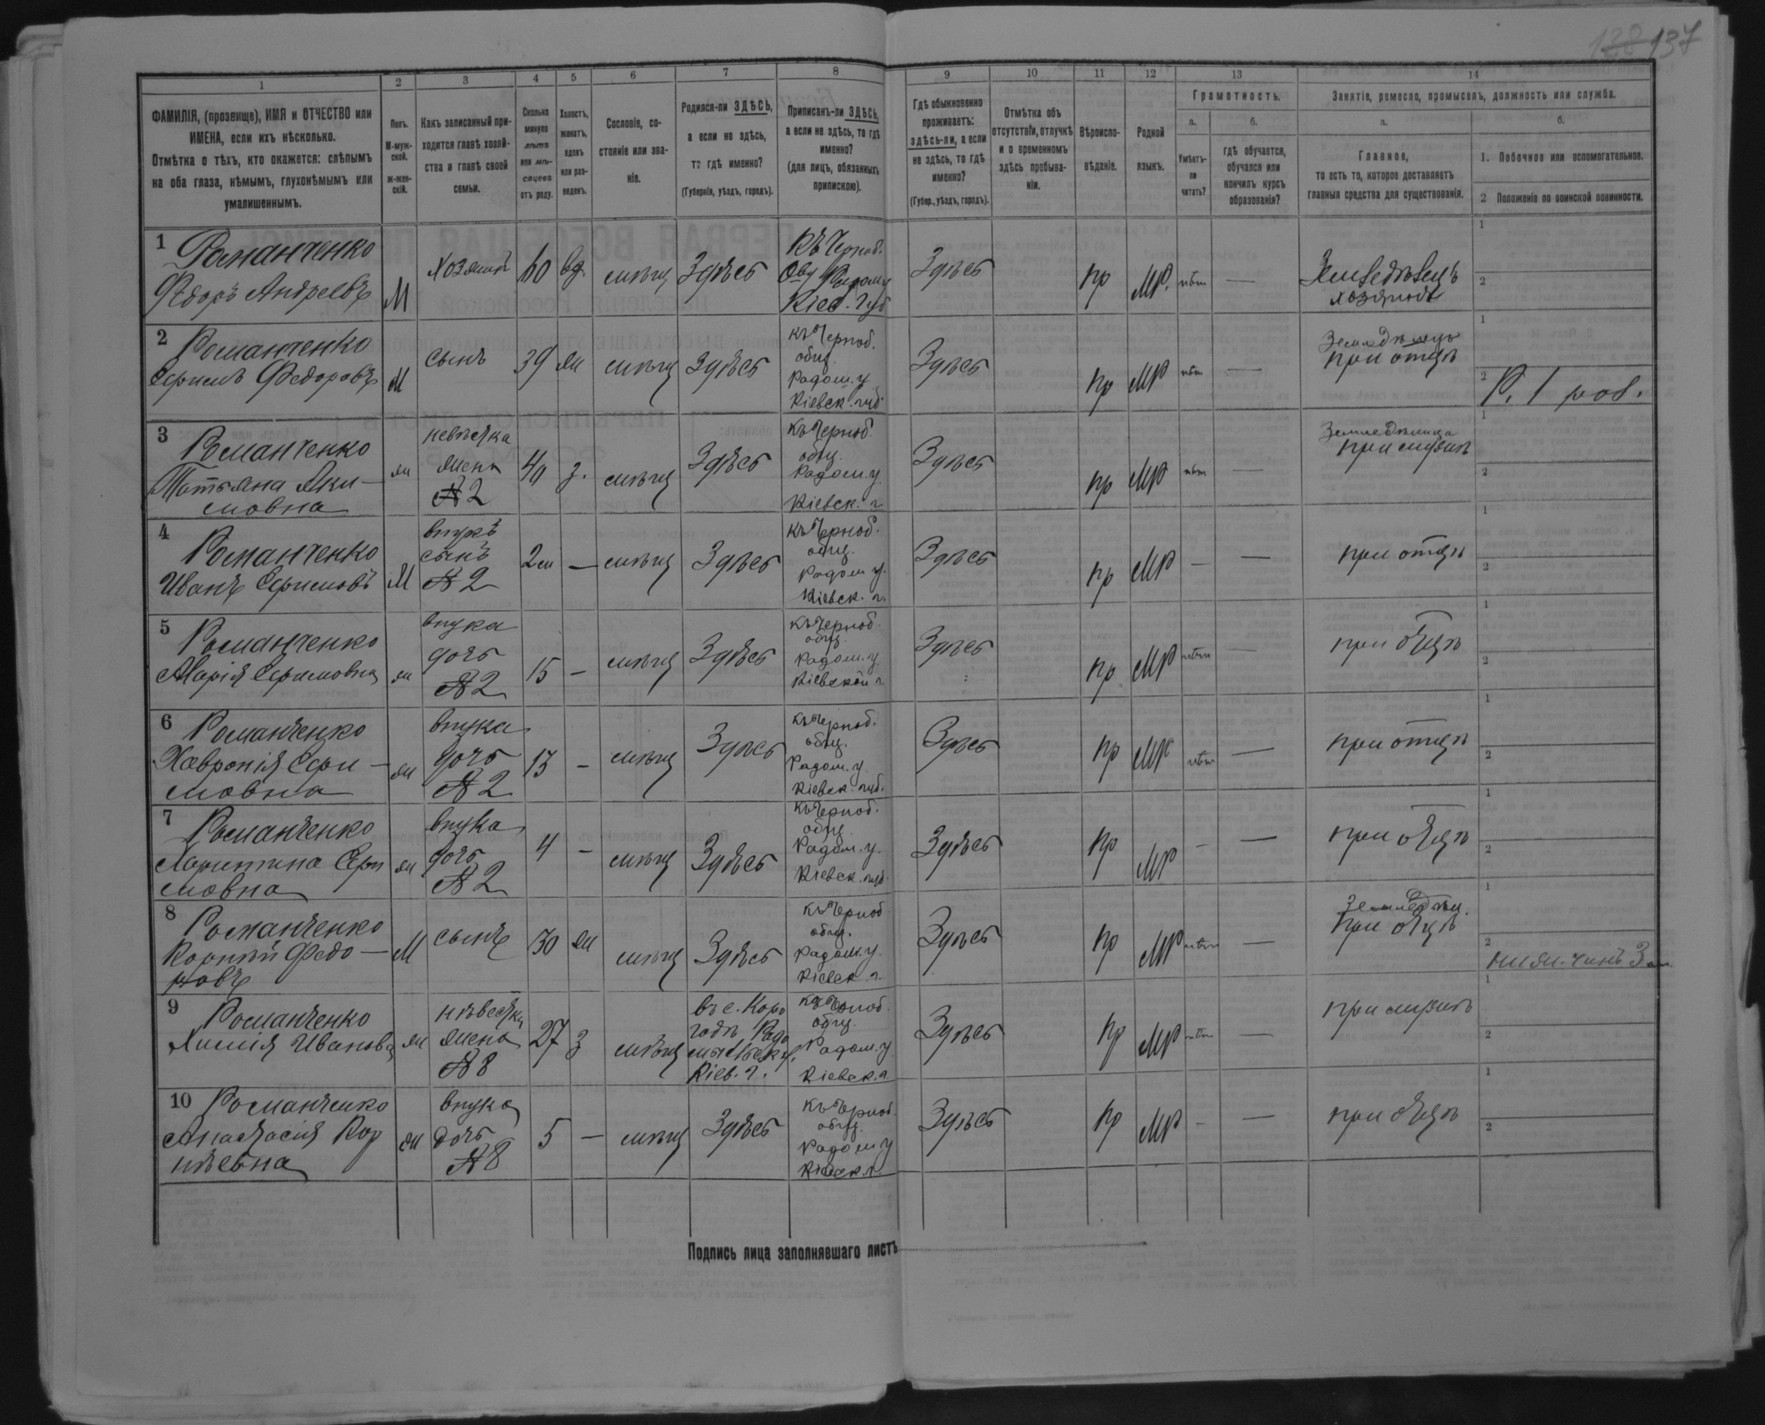 128 137
1 2 3 4 5 6 7 8 9 10 11 12 13 14
ФАМИЛІЯ, (прозвище), ИМЯ и ОТЧЕСТВО или
ИМЕНА, если ихъ нѣсколько.
Отмѣтка о тѣхъ, кто окажется: слѣпымъ
на оба глаза, нѣмымъ, глухонѣмымъ или
умалишеннымъ.
Полъ.
М-муж-
ской.
Ж-жен-
скій.
Какъ записанный при-
ходится главѣ хозяй-
ства и главѣ своей
семьи.
Сколько
минуло
лѣтъ
или мѣ-
сяцевъ
отъ роду.
Холостъ,
женатъ,
вдовъ
или раз-
веденъ.
Сословіе, со-
стояніе или зва-
ніе.
Родился-ли ЗДѢСЬ,
а если не здѣсь,
то гдѣ именно?
(Губернія, уѣздъ, городъ).
Приписанъ-ли ЗДѢСЬ,
а если не здѣсь, то гдѣ
именно?
(для лицъ, обязанныхъ
припискою).
Гдѣ обыкновенно
проживаетъ:
здѣсь-ли, а если
не здѣсь, то гдѣ
именно?
(Губер., уѣздъ, городъ).
Отмѣтка объ
отсутствіи, отлучкѣ
и о временномъ
здѣсь пребыва-
ніи.
Вѣроиспо-
вѣданіе.
Родной
языкъ.
Грамотность.
а.
Умѣетъ-
ли
читать?
б.
гдѣ обучается,
обучался или
кончилъ курсъ
образованія?
Занятіе, ремесло, промыселъ, должность или служба.
а.
Главное,
то есть то, которое доставляетъ
главныя средства для существованія.
б.
1. Побочное или вспомогательное.
2 Положеніе по воинской повинности.
1 Романченко
Федоръ Андреевъ
М
хозяинъ
60 вд. мѣщ Здѣсь
Къ Черноб.
Радому
Кіев. губ
Здѣсь
пр МР. нѣт —
Земледѣлецъ
хозяинъ
1
2
2 Романченко
Ефимъ Федоровъ
М сынъ 39 ж мѣщ Здѣсь
къ Черноб.
общ.
Радом. у
Кіевск. губ
Здѣсь
пр МР нѣт —
при отцѣ
1
2 Р. 1 раз.
3 Романченко
Татьяна Аки-
мовна
ж
невѣстка
жена
№2
40 з. мѣщ Здѣсь
къ Черноб.
общ.
Радом. у.
Кіевск. г.
Здѣсь
пр МР нѣт —
при мужѣ
1
2
4 Романченко
Иванъ Ефимовъ
М
внукъ
сынъ
№2
2м — мѣщ Здѣсь
къ Черноб.
общ.
Радом у.
Кіевск. г.
Здѣсь
пр МР — —
при отцѣ
1
2
5 Романченко
Марія Ефимовна
ж
внука
дочь
№2
15 — мѣщ Здѣсь
къ Черноб.
общ.
Радом. у
Кіевской г
Здѣсь
пр МР нѣт —
при отцѣ
1
2
6 Романченко
Хавронія Ефи-
мовна
ж
внука
дочь
№2
13 — мѣщ Здѣсь
къ Черноб.
общ.
Радом. у
Кіевск. губ.
Здѣсь
пр МР нѣт —
при отцѣ
1
2
7 Романченко
Ефи
мовна
ж
внука
дочь
№2
4 — мѣщ Здѣсь
къ Черноб.
общ.
Радом. у.
Кіевск. губ
Здѣсь
пр МР — —
при отцѣ
1
2
8 Романченко
Корній Федо-
ровъ
М сынъ 30 ж мѣщ Здѣсь
къ Черноб
общ.
Радом. у.
Кіевск. г.
Здѣсь
пр МР нѣт —
Земледѣлец.
при отцѣ
1
2 ниж. чинъ З
9 Романченко
Ивановна
ж
невѣстка
жена
№8
27 з мѣщ
въ с. Коро
годѣ Радо
мысльск у.
Кіев. г.
къ Черноб.
общ.
Радом. у
Кіевск. г
Здѣсь
пр МР нѣт —
при мужѣ
1
2
10 Романченко
Анастасія Кор
нѣевна
ж
внука
дочь
№8
5 — мѣщ Здѣсь
къ Черноб.
общ.
Радом. у
Кіевск. г
Здѣсь
пр МР — —
при отцѣ
1
2
Подпись лица заполнявшаго листъ